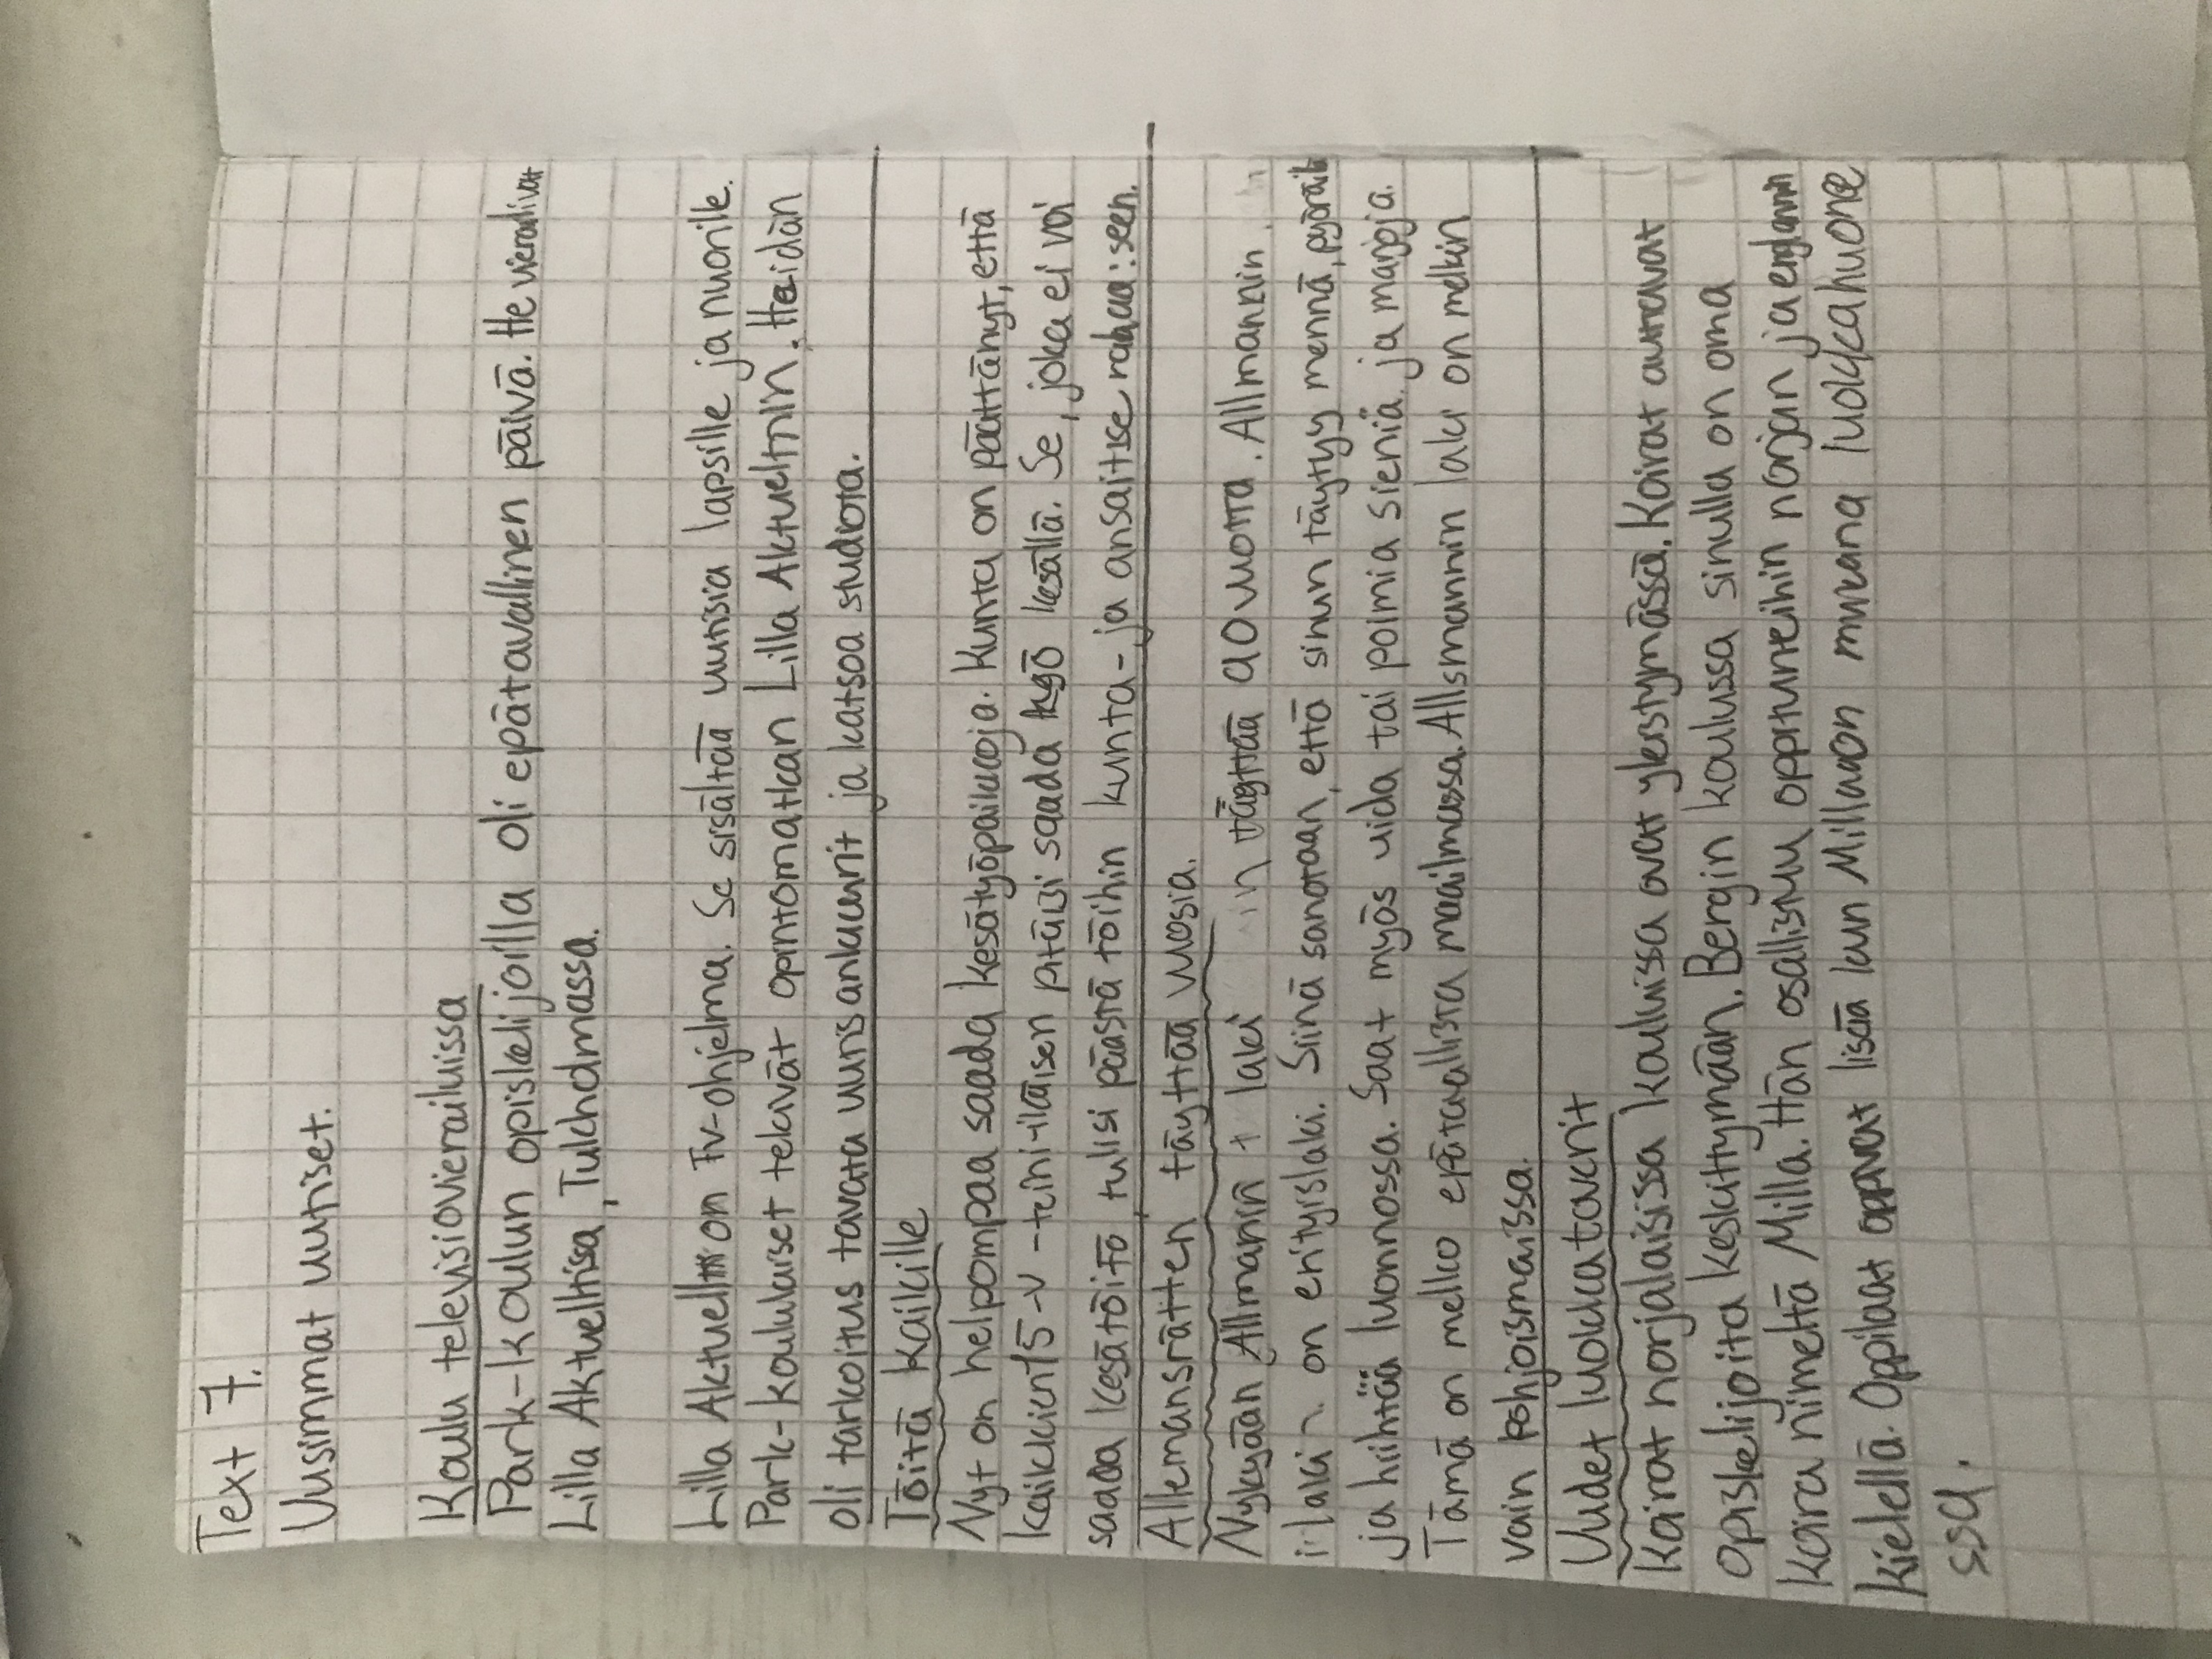 Text 7.
Uusimmat uutiset.
Koulu televisiovierailuissa
Park-koulun opiskelijoilla oli epätavallinen päivä. He vierailivat
Lilla Aktuelltissa, Tulchdmassa.
Lilla Aktuellt on Tv-ohjelma. Se sisältää uutisia lapsille ja nuorile.
Park-koululaiset tekivät opintomatkan Lilla Aktueltnin. Heidän
oli tarkoitus tavata uutisankurit ja katsoa studiota.
Töitä kaikille
Nyt on helpompaa saada kesätyöpaikkoja. Kunta on päättänyt, että
kaikkien 15-v -teini-iläisen pitäisi saada työ kesällä. Se, joka ei voi
saada kesätöitö tulisi päästä töihin kunta- ja ansaitse rahaa: seen.
Allemansrätten täyttää vuosia.
Nykyään Allmanin laki täyttää 20 vuotta. Allmannin
laki on erityislaki. Siinä sanotaan, ettö sinun täytyy mennä, pyöräillä
ja hiihtää luonnossa. Saat myös uida tai poimia sieniä ja marjoja.
Tämä on melko epätavallista maailmassa. Allsmannin laki on melkin
vain pohjoismaissa.
Uudet luokkatoverit
Koirat norjalaisissa kouluissa ovat yleistymässä. Koirat auttavat
opiskelijoita keskittymään. Bergin koulussa sinulla on oma
koira nimeltä Milla. Hän osallistuu oppitunneihin norjan ja englannin
kielellä. Oppilaat oppivat lisää kun Milla on mukana luokkahuone
ssa.